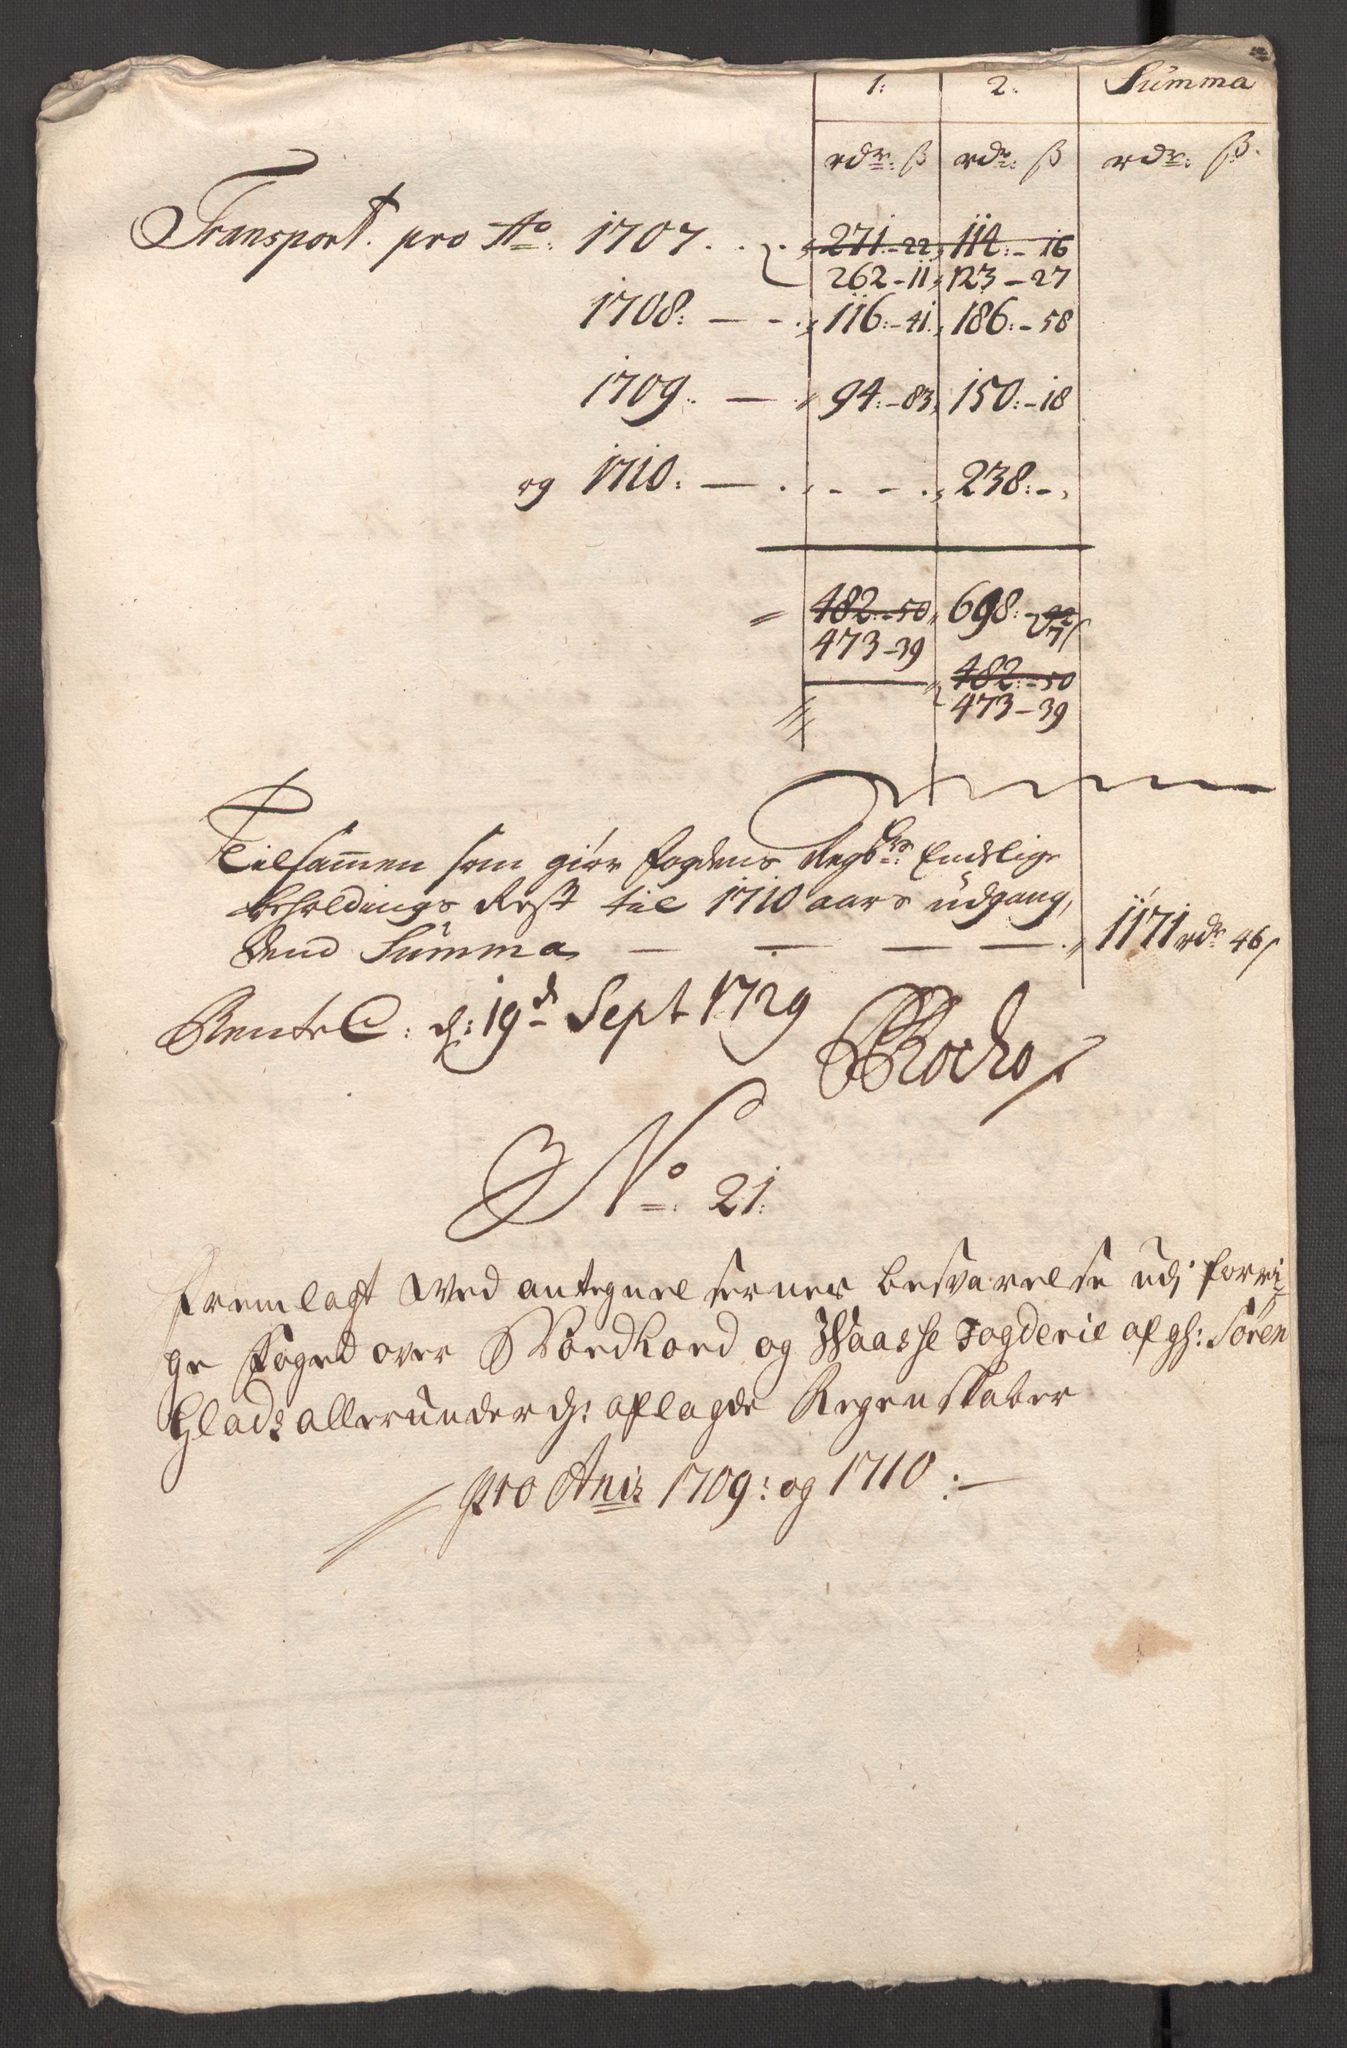 1: 2: Summa
rdr: ß rdr: ß rdr: ß.
Transport. pro Ao: 1707. 271.-22 114:-16
262-11 123-27
1708: 116:-41. 186:-58
1709. 94:-83 150:-18
og 1710: 238:-
482:-50 698:-
473-39 7ß
482:-50
473-39
Tilsammen som giør fogdens Endelige
beholdings Rest til 1710 aars udgang,
dend Summa 1171 rdr 46ß
RenteC: d: 19d Sept 1729
No: 21:
Fremlagt Wed antegnelsernes besvarelse udj forri-
ge Foged over Nordhord og Waasse Fogderie afgh: Søren
Glads allerunderd: aflagde Regenskaber
pro Anis 1709: og 1710:-